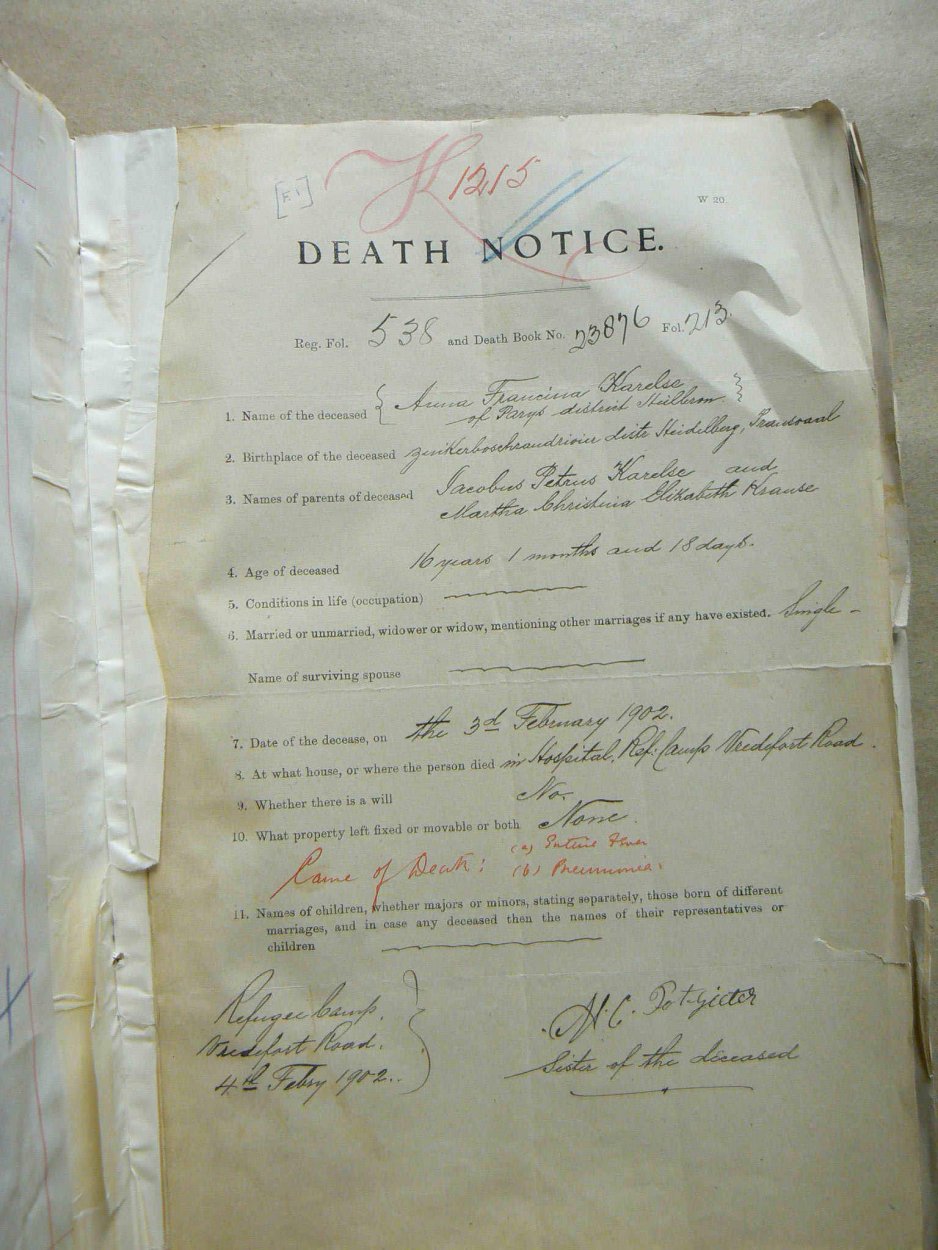 [F.1]
K 1215
W 20
DEATH NOTICE.
Reg. Fol. 538 and Death Book No. 23876 Fol. 213.
1. Name of the deceased { Anna Francina Karelse
of Parys district Heilbron. }
2. Birthplace of the deceased Zuikerboschrandrivier distr Heidelberg, Transvaal
3. Names of parents of deceased Jacobus Petrus Karelse and
Martha Christina Elizabeth Krause
4. Age of deceased 16 years 1 months and 18 days.
5. Conditions in life (occupation)
6. Married or unmarried, widower or widow, mentioning other marriages if any have existed. Single -
Name of surviving spouse
7. Date of the decease, on the 3rd February 1902.
8. At what house, or where the person died in Hospital, Ref: Camp Vredefort Road.
9. Whether there is a will No.
10. What property left fixed or movable or both None.
Cause of Death: (a) Enteric Fever
(b) Pneumonia.
11. Names of children, whether majors or minors, stating separately, those born of different
marriages, and in case any deceased then the names of their representatives or
children
Refugee Camp.
Vredefort Road.
4th Febry 1902..
H. C. Potgieter
Sister of the deceased